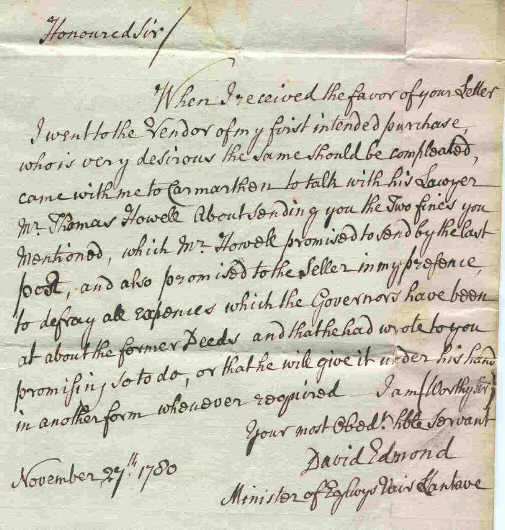 Honoured Sir/
When I received the favor of your Letter
I went to the Vendor of my first intended purchase,
who is very desirous the same should be compleated,
came with me to Carmarthen to talk with his Lawyer
Mr. Thomas Howell About sending you the Two fines you
Mentioned, which Mr. Howell promised to send by the last
post, and also promised to the Seller in my presence,
to defray all expences which the Governors have been
at about the former Deeds and that he had wrote to you
promising so to do, or that he will give it under his hand
in another form whenever required I am/Worthy Sir/
Your most Obedt. hble Servant
David Edmond
November 27th. 1780
Minister of